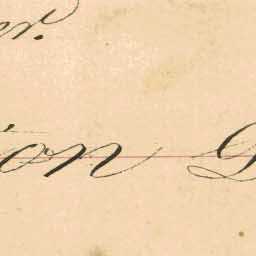 er.
ion